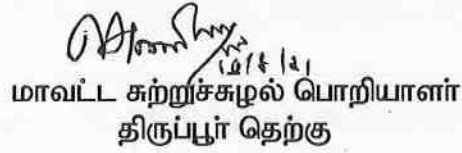 மாவட்ட சுற்றுச்சூழல் பொறியாளர்
திருப்பூர் தெற்கு